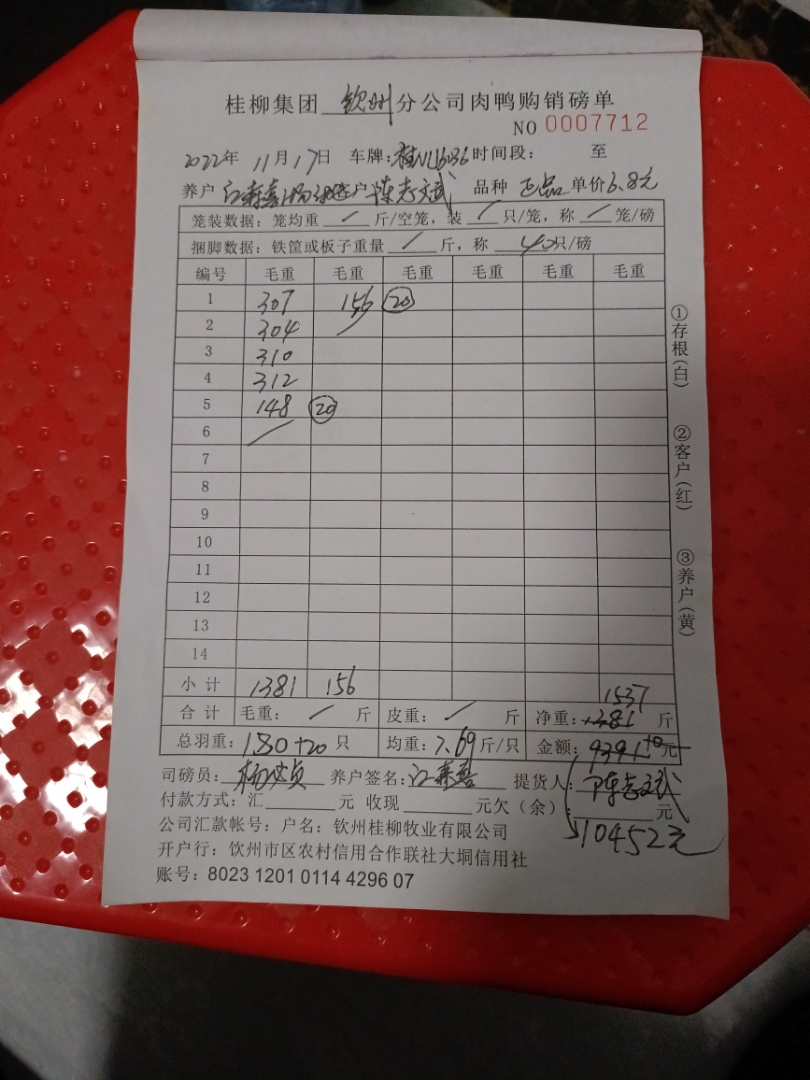 桂柳集团 钦州 分公司肉鸭购销磅单
NO 0007712
2022年 11月17日 车牌: 时间段: 至
养户 江森喜 客户 陈志文武 品种 正品 单价6.8元
笼装数据:笼均重 / 斤/空笼,装 / 只/笼,称 / 笼/磅
捆脚数据:铁筐或板子重量 / 斤,称 40只/磅
编号 毛重 毛重 毛重 毛重 毛重 毛重
1 307 156 20
2 304
3 310
4 312
5 148 20
6 /
7
8
9
10
11
12
13
14
小计 1381 156 1537
合计 毛重: / 斤 皮重: / 斤 净重:1381 斤
总羽重:180+20 只 均重:7.69斤/只 金额:9391 元
司磅员: 养户签名:江森喜 提货人:陈志文武
付款方式:汇 元 收现 元欠(余): 元
10452元
公司汇款帐号:户名:钦州桂柳牧业有限公司
开户行:饮州市区农村信用合作联社大垌信用社
账号:8023 1201 0114 4296 07
①存根(白)
②客户(红)
③养户(黄)